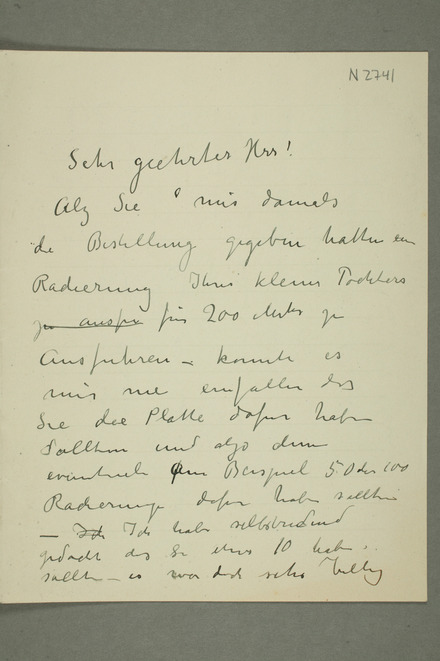 N 2741
Sehr geehrter Herr!
Alz Sie mir damals
die Bestellung gegeben hatten ein
Radierung Ihres kleinen Tochters
zu für 200 Marks zu
Ausfuhren – konnte es
mir nie einfallen das
Sie die Platte dafur haben
Sollten und algo dan
eventuel Beispiel 50 der 100
Radierunge dafur haben sollten
– Ich Ich habe selbstredend
gedacht das Sie etwa 10 haben
sollten – es war doch sehr billig